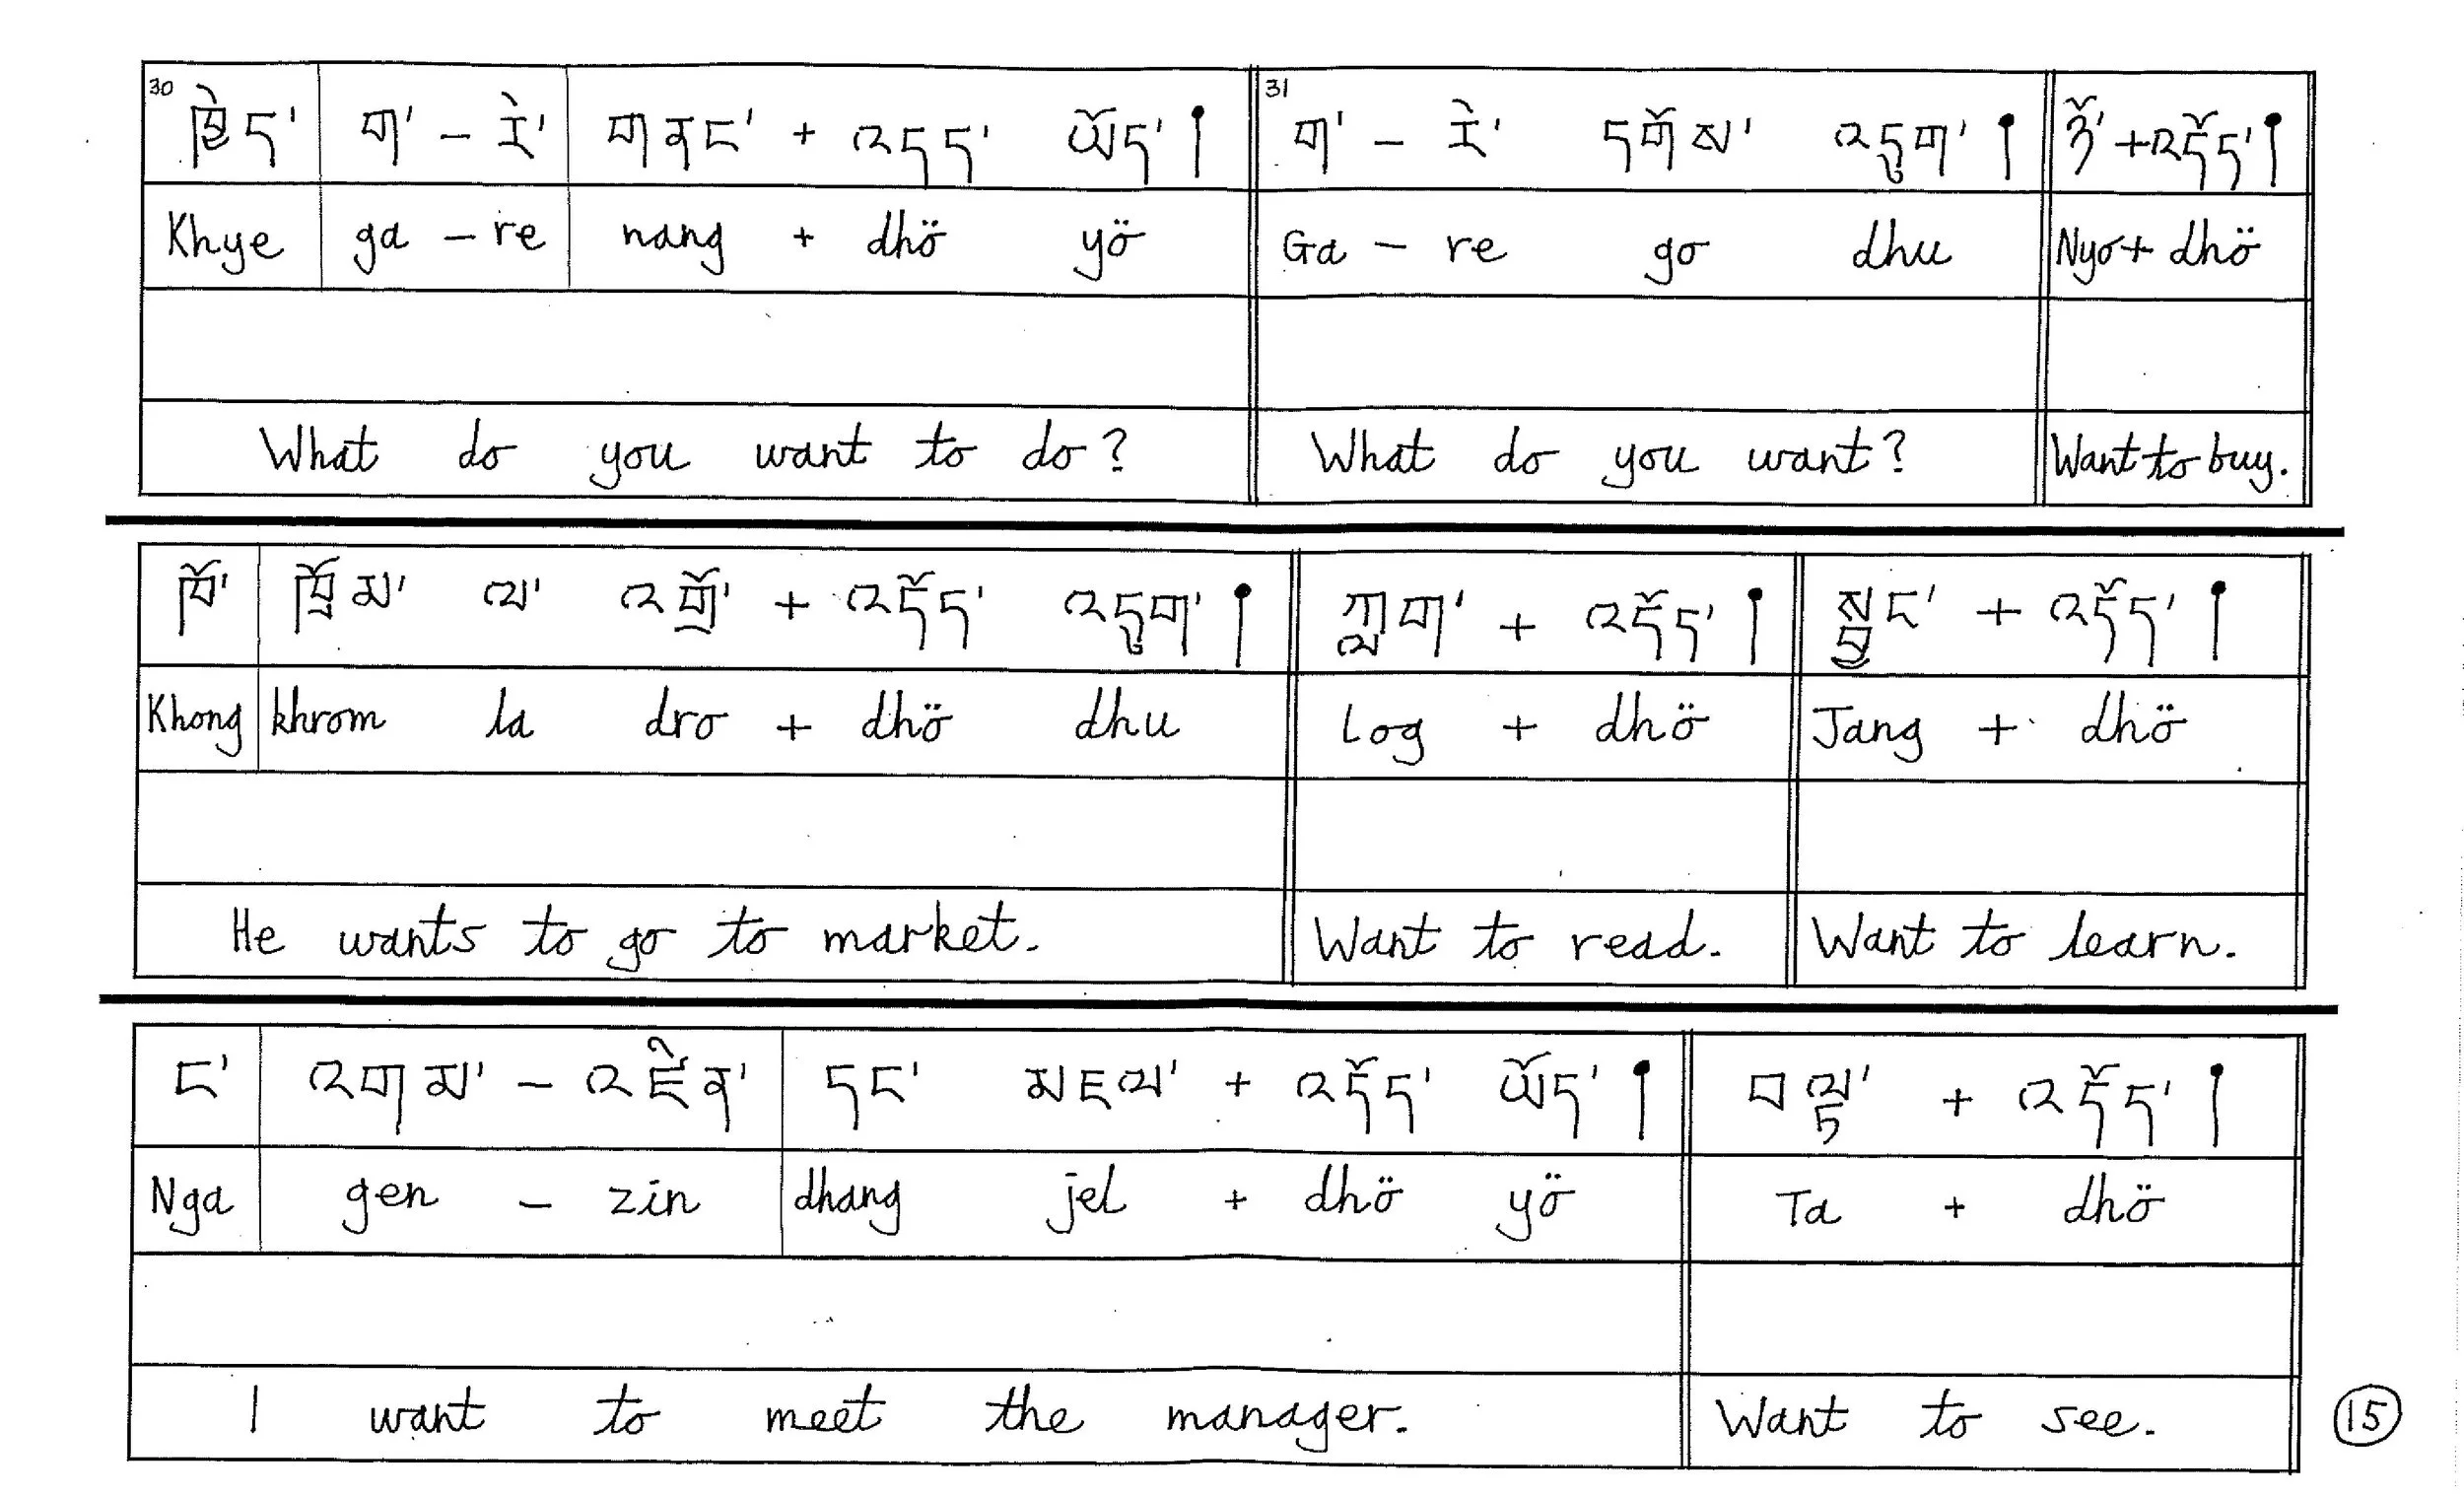 30 ཁྱེད་ ག་ - རེ་ གནང་ + འདད་ ཡོད་། 31 ག་ - རེ་ དགོས་ འདུག་། ཉོ་ + འདོད་།
Khye ga - re nang + dhö yö Ga - re go dhu Nyo + dhö
What do you want to do? What do you want? Want to buy.
ཁོ་ ཁྲོམ་ ལ་ འགྲོ་ + འདོད་ འདུག་། ཀླག་ + འདོད་། སྦྱང་ + འདོད་།
Khong khrom la dro + dhö dhu Log + dhö Jang + dhö
He wants to go to market. Want to read. Want to learn.
ང་ འགམ་ - འཛིན་ དང་ མཇལ་ + འདོད་ ཡོད་། བལྟ་ + འདོད་།
Nga gen - zin dhang jel + dhö yö Ta + dhö
I want to meet the manager. Want to see. 15